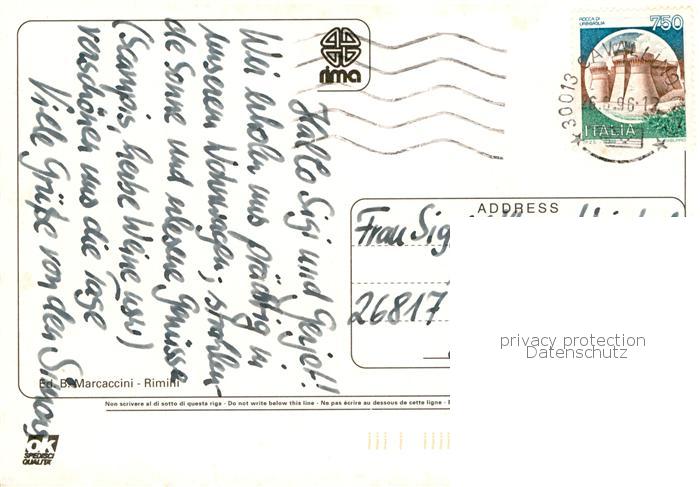 Hallo Sigi und Geyo!!
Wir erholen uns prächtig in
unseren Wohnwagen; strahlen-
de Sonne und leckere Genüsse
(Scampis, herbe Weine usw)
verschönen uns die Tage
Viele Grüße von den Simons
rima
ROCCA DI URBISAGLIA
750
ITALIA
30013 CAVALLINO
ADDRESS
Frau Sig
26817
privacy protection
Datenschutz
Ed. B. Marcaccini - Rimini
Non scrivere al di sotto di questa riga - Do not write below this line - Ne pas écrire au dessous de cette ligne -
ok
SPEDISCI
QUALITÀ